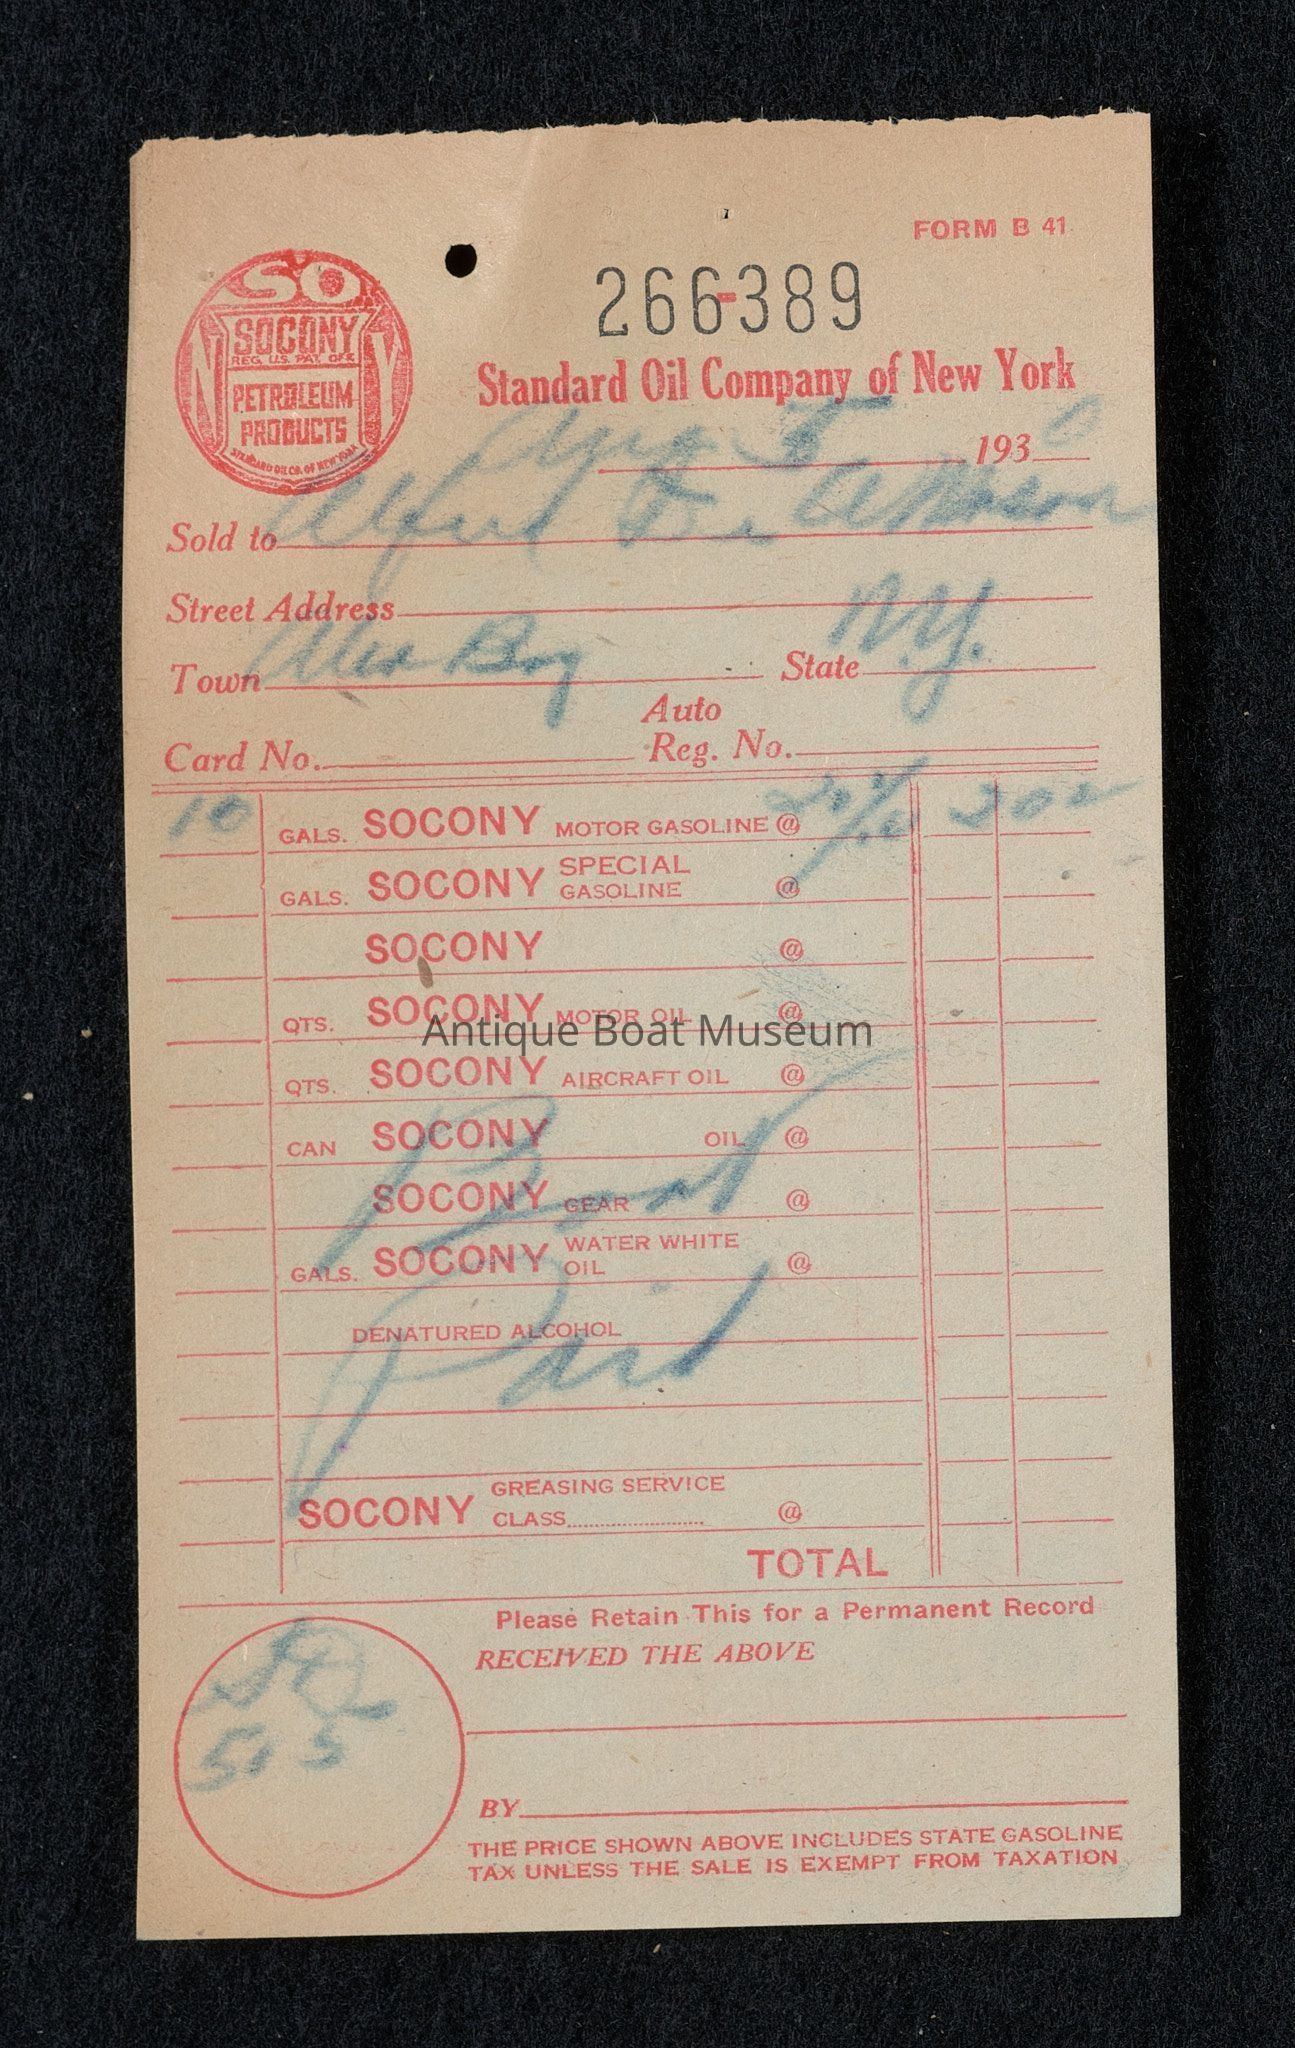 FORM B 41
SO
SOCONY
REG. U.S. PAT. OFF.
PETROLEUM
PRODUCTS
STANDARD OIL CO. OF NEW YORK
266-389
Standard Oil Company of New York
Aug 193 0
Sold to Alfred
Street Address
Town Alex Bay State N.Y.
Auto
Card No. Reg. No.
10 GALS. SOCONY MOTOR GASOLINE @ 202
GALS. SOCONY SPECIAL GASOLINE @
SOCONY @
QTS. SOCONY MOTOR OIL @
Antique Boat Museum
QTS. SOCONY AIRCRAFT OIL @
CAN SOCONY OIL @
Boat
SOCONY GEAR @
GALS. SOCONY WATER WHITE OIL @
Paid
DENATURED ALCOHOL
SOCONY GREASING SERVICE
CLASS @
TOTAL
Please Retain This for a Permanent Record
RECEIVED THE ABOVE
BY
THE PRICE SHOWN ABOVE INCLUDES STATE GASOLINE
TAX UNLESS THE SALE IS EXEMPT FROM TAXATION